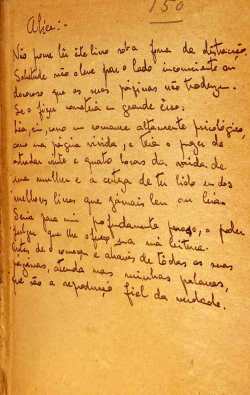 150
Alice:-
Não pense lêr êste livro sob a forma de distração.
Sobretudo não o leve para o lado inconsciente ou
doloroso que as suas páginas não traduzem.
Se o fizer cometerá um grande êrro.
Leia, sim, como um romance altamente psicológico,
como uma página vivida, e terá o prazer de
estudar vinte e quatro horas da vida de
uma mulher e a certeza de ter lido um dos
melhores livros que jamais leu ou lerá.
Seria para mim profundamente penoso, o poder
julgar que lhe ofereço uma má leitura.
Antes de começar e através de tôdas as suas
páginas, atenda nas minhas palavras,
que são a reprodução fiel da verdade.